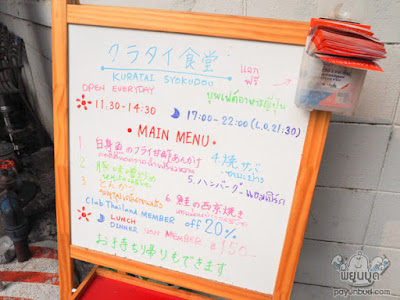 クラタイ食堂
KURATAI SYOKUDOU
แจก
ฟรี
OPEN EVERYDAY
บุฟเฟ่ต์อาหารญี่ปุ่น
11:30-14:30
17:00-22:00 (L.O,21:30)
• MAIN MENU •
1 白身魚のフライ甘酢あんかけ
4. 焼サバ
2. 豚味噌炒め
5. ハンバーグ
3 とんかつ
6. 鮭の西京焼き
Club Thailand MEMBER off 20%
LUNCH
DINNER NON MEMBER ฿150.-
お手持ち帰りもできます
พยุนบุด
payunbud.com